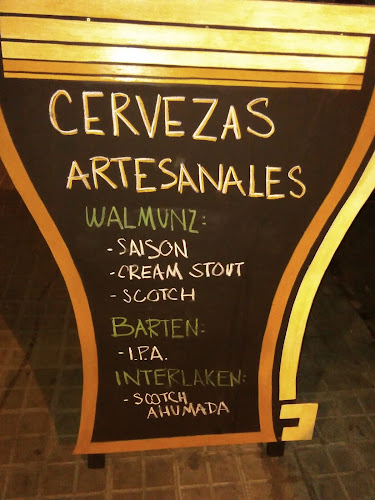 CERVEZAS
ARTESANALES
WALMUNZ:
- SAISON
- CREAM STOUT
- SCOTCH
BARTEN:
- I.P.A.
INTERLAKEN:
- SCOTCH
AHUMADA